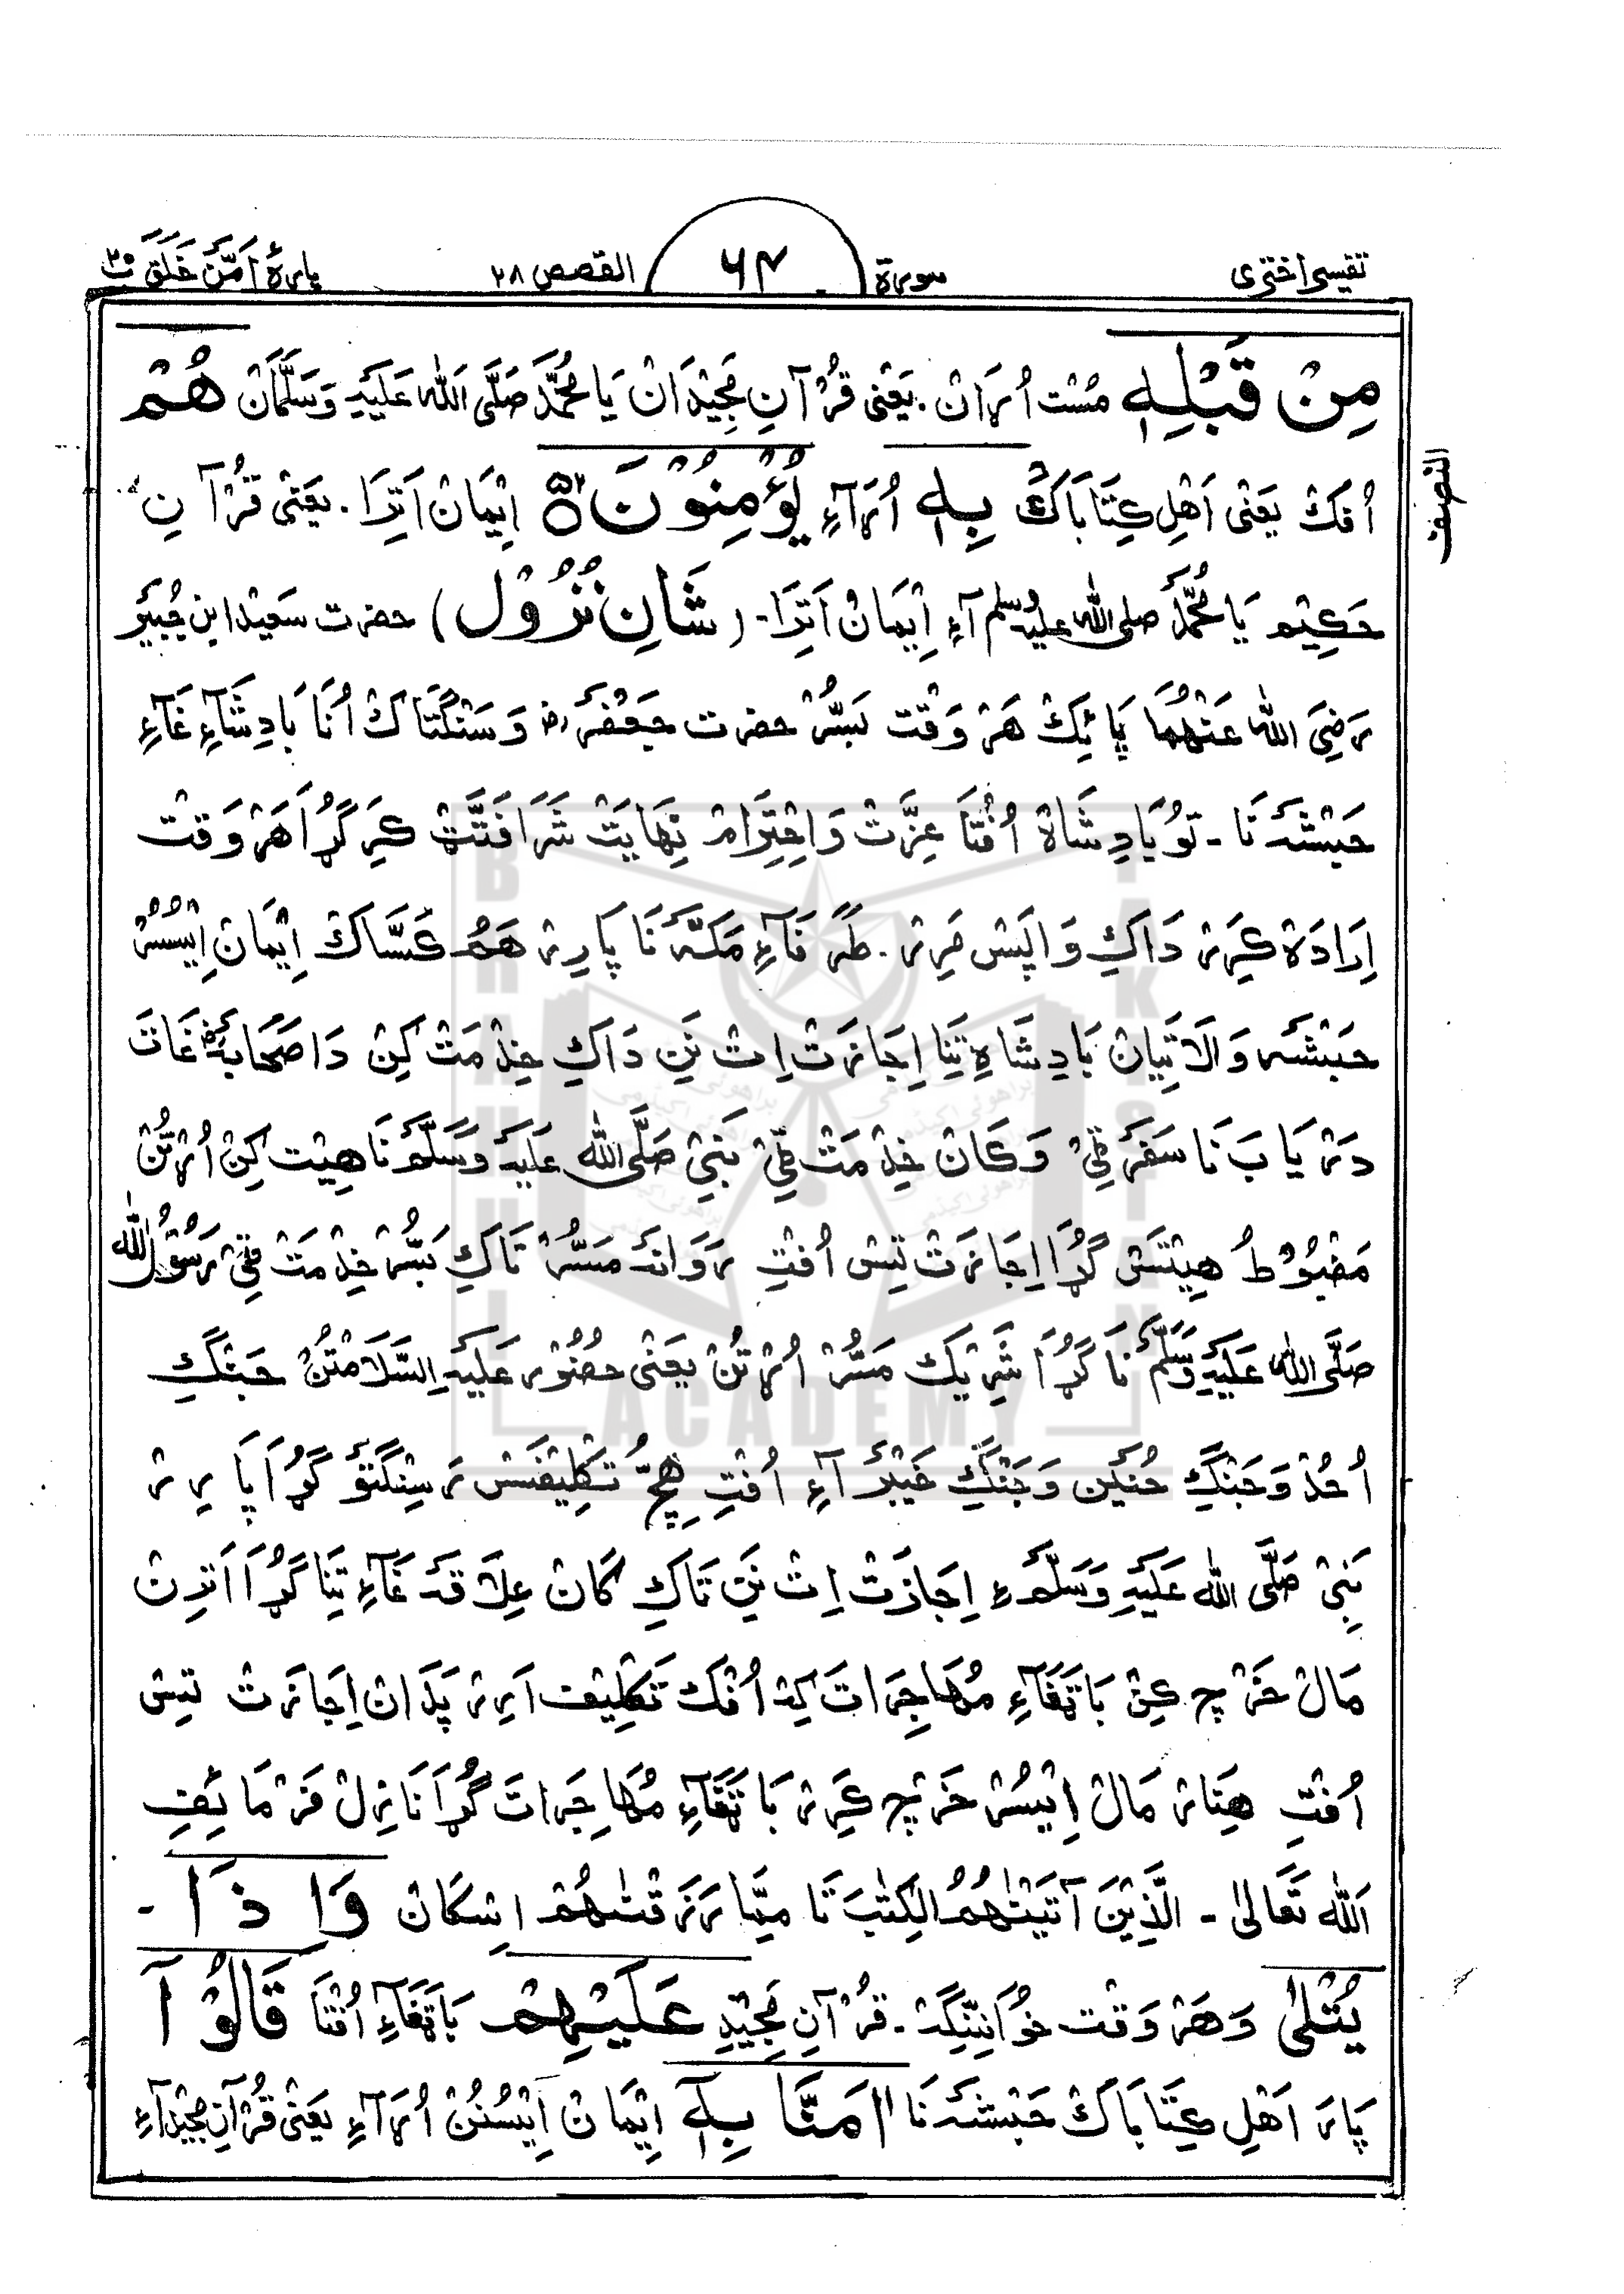 تفسیر اختری سورة ۶۴ القصص ۲۸ پارۂ اَمَّنْ خَلَقَ ۲۰
مِنْ قَبْلِهٖ مُسْت اُرَانْ . یَعْنٖی قُرْآنِ مَجِیْدَانْ یَا مُحَمَّد صَلَّی اللّٰه عَلَیْهِ وَسَلَّمَانْ هُمْ
اُفْکْ یَعْنٖی اَهْلِ کِتَابَاکْ بِهٖ اُرَآءِ یُؤْمِنُوْنَ ۵۲ اِیْمَانْ اَتِرَا . یَعْنٖی قُرْآنِ
النصف
حَکِیْم یَا مُحَمَّد صلی اللّٰه علیه وسلم آءِ اِیْمَانْ اَتِرَا - (شَانِ نُزُوْل) حضرت سعید ابن جُبَیْر
رَضِیَ اللّٰه عَنْهُمَا پَائِکْ هَرْ وَقْت بَسُّرْ حضرت جَعْفَر رض وَ سَنْگَتَاکْ اُنَا بَادِشَاءِ غَآءِ
حَبْشَه نَا - تَوْ بَادِشَاهْ اُفْتَا عِزَّتْ وَ اِحْتِرَامْ نِهَایَتْ شَرَافَتَتْ کَرِ گُڑَا هَرْ وَقْت
اِرَادَهْ کَرِرْ دَاکِ وَاپَسْ مَرِرْ . طَرَفَآءِ مَکَّه نَا پَارِرْ هَمُ کَسَّاکْ اِیْمَانْ اِیْسُسُرْ
حَبْشَه وَالَاتِیَانْ بَادِشَاهِ تِنَا اِجَازَتْ اِتْ نَنِ دَاکِ خِدْمَتْ کِنْ دَا صَحَابَه غَاتَ
دَرْیَابَ نَا سَفَرَ ٹِیْ وَکَانْ خِدْمَتْ ٹِیْ نَبِیْ صَلَّی اللّٰه عَلَیْهِ وَسَلَّمَ نَا هِیْت کِنْ اُرْتُنْ
مَضْبُوْطُ هِیْتَسْ گُڑَا اِجَازَتْ تِسْ اُفْتِ رَوَانَه مَسُّرْ تَاکِ بَسُّرْ خِدْمَتْ ٹِیْ رَسُوْلُ اللّٰه
صَلَّی اللّٰه عَلَیْهِ وَسَلَّمَ نَا گُڑَا شَرِیْک مَسُّرْ اُرْتُنْ یَعْنٖی حضُوْر عَلَیْهِ السَّلَامْتُنْ جَنْگِ
اُحُدْ وَ جَنْگِ حُنَیْن وَ جَنْگِ خَیْبَر آءِ اُفْتِ هِچُّ تَکْلِیْفَسْ رَسِنْگَتَوْ گُڑَا پَارِرْ
نَبِیْ صَلَّی اللّٰه عَلَیْهِ وَسَلَّمَ ءِ اِجَازَتْ اِتْ نَنِ تَاکِ کَانْ عِلَاقَه غَآءِ تِنَا گُڑَا اَتِرِنْ
مَالْ خَرْچ کِنْ بَاتَغَآءِ مُهَاجِرَاتَ کِه اُفْکْ تَکْلِیْف اَرِرْ پَدَانْ اِجَازَتْ تِسْ
اُفْتِ هِتَارْ مَالْ اِیْسُرْ خَرْچ کَرِرْ بَاتَغَآءِ مُهَاجِرَاتَ گُڑَا نَازِلْ فَرْمَائِفِ
اللّٰه تَعَالٰی - الَّذِیْنَ آتَیْنٰهُمُ الْکِتٰبَ تَا مِمَّا رَزَقْنٰهُمْ اِسْکَانْ وَاِذَا -
یُتْلٰی وَهَرْ وَقْت خُوَانِنْگِه - قُرْآنِ مَجِیْدِ عَلَیْهِمْ بَاتَغَآءِ اُفْتَا قَالُوْآ
پَارَ اَهْلِ کِتَابَاکْ حَبْشَه نَا اٰمَنَّا بِهٖ اِیْمَانْ اِیْسُنُنْ اُرَآءِ یَعْنٖی قُرْآنِ مَجِیْدْآءِ
BRAHUI ACADEMY PAKISTAN